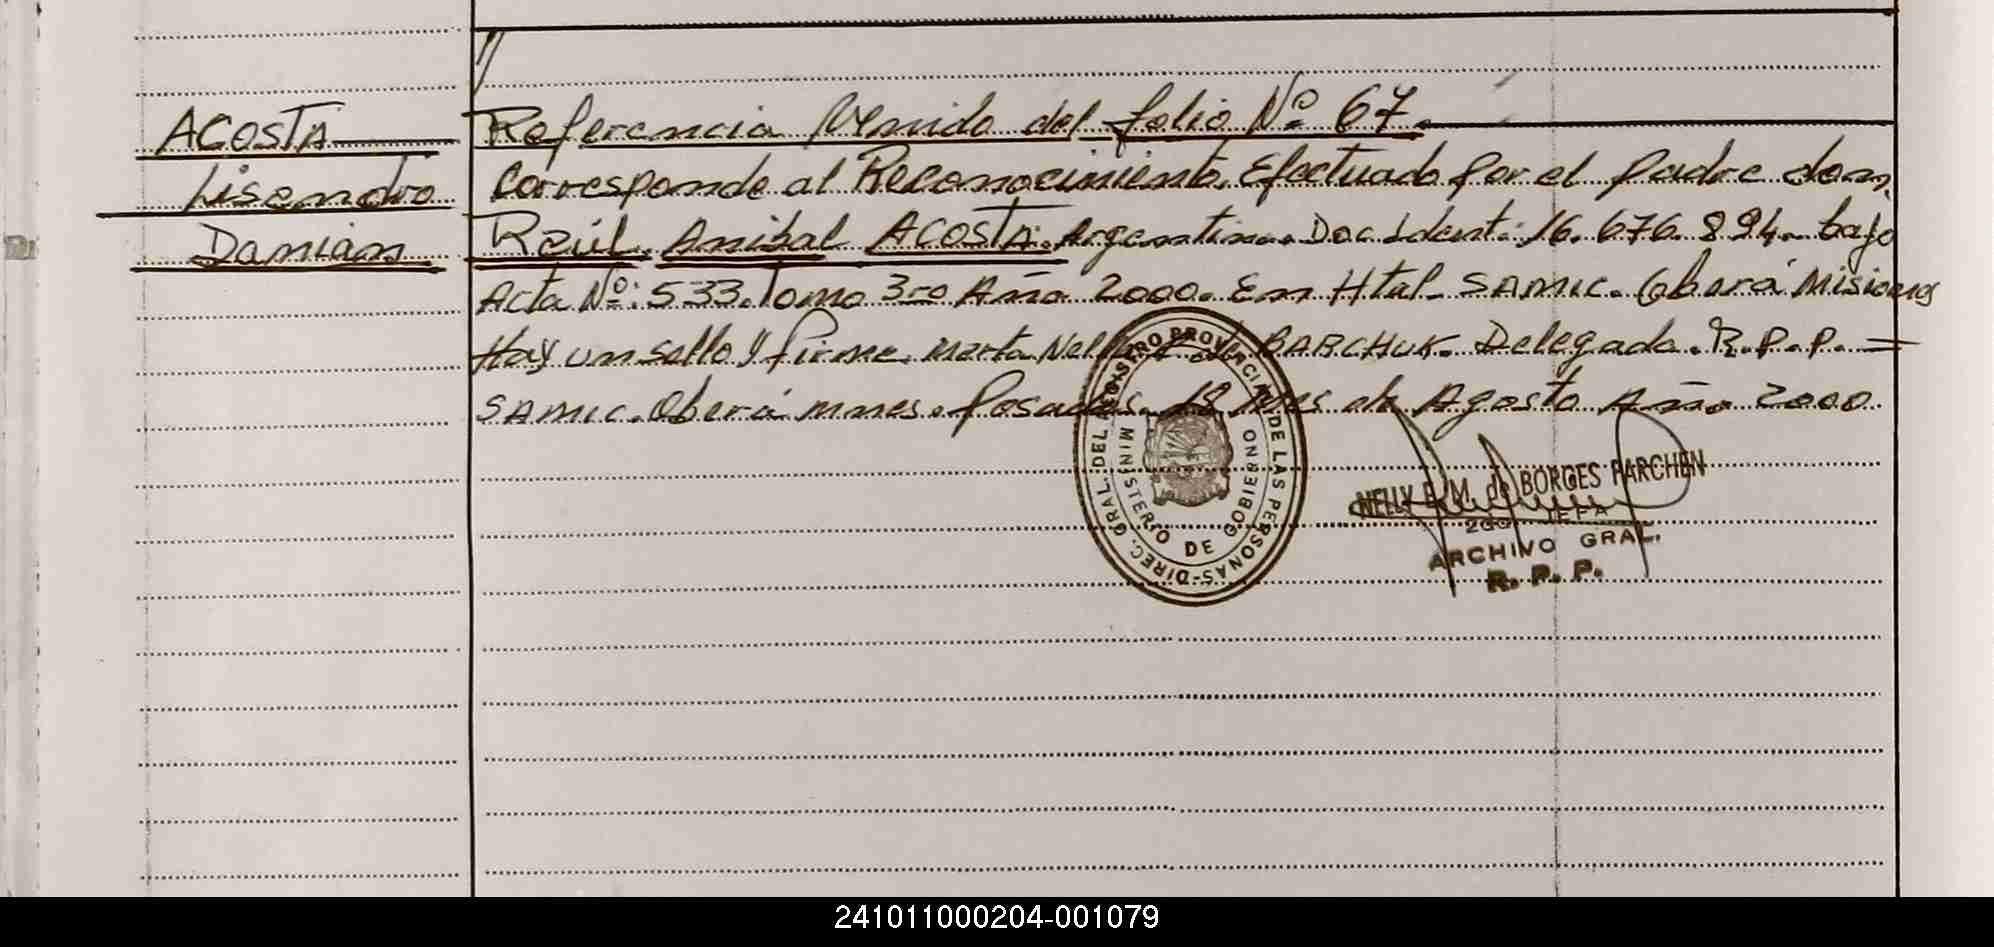 //
ACOSTA
Lisandro
Damian
Referencia Venido del folio Nº 67.
Corresponde al Reconocimiento. Efectuado por el padre don.
Raúl. Anibal ACOSTA. Argentino. Doc Ident: 16.676.894. bajo
Acta Nº: 533. Tomo 3ro Año 2000. En Htal. SAMIC. Oberá Misiones
Hay un sello y firma. Marta Nelly de BARCHUK. Delegada. R.P.P. =
SAMIC. Oberá mnes. Posadas. 18 Mes de Agosto Año 2000
DIREC. GRAL. DEL REGISTRO PROVINCIAL DE LAS PERSONAS
MINISTERIO DE GOBIERNO
NELLY E. M. de BORGES PARCHEN
JEFA
ARCHIVO GRAL.
R. P. P.
241011000204-001079